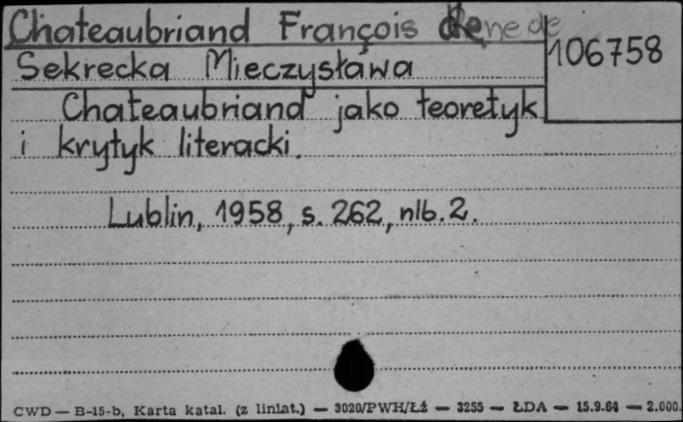 Chateaubriand François Rene de
106758
Sekrecka Mieczysława
Chateaubriand jako teoretyk
i krytyk literacki.
Lublin, 1958, s. 262, nlb. 2.
CWD — B-15-b, Karta katal. (z liniat.) — 3020/PWH/Łź — 3255 — ŁDA — 15.9.64 — 2.000.